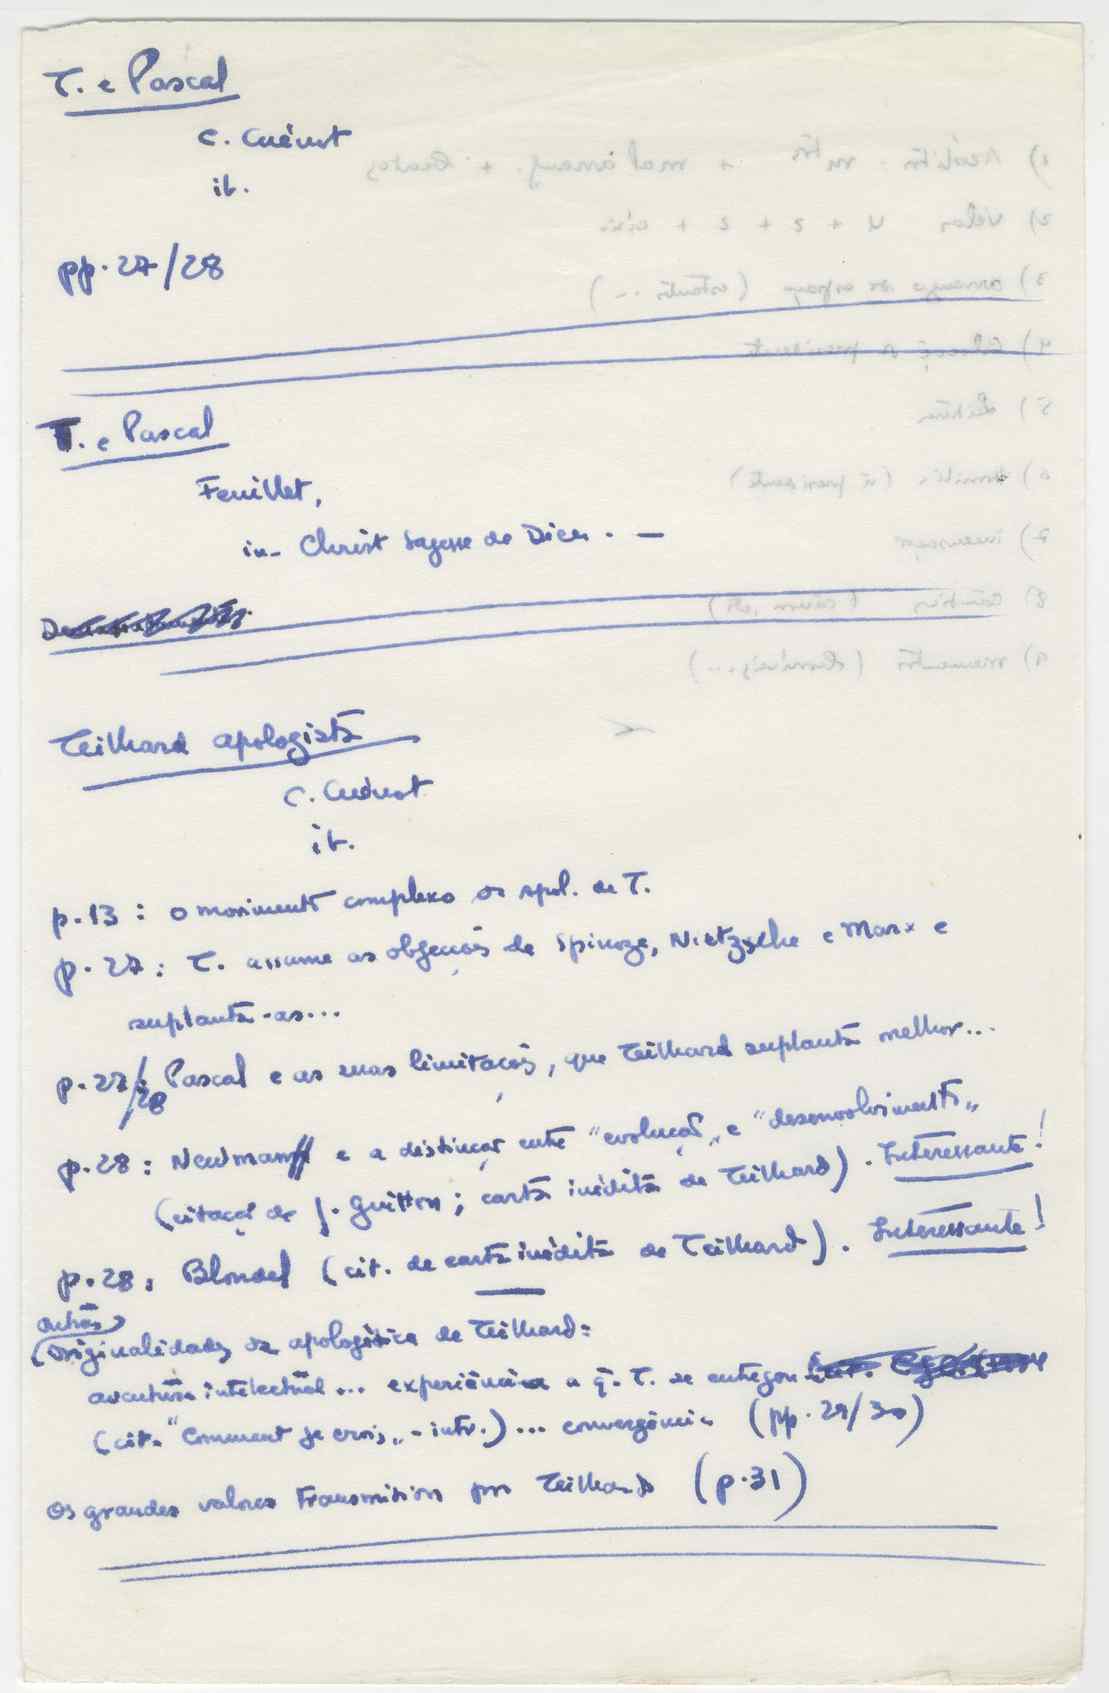 T. e Pascal
C. Cuénot
ib.
pp. 27/28
T. e Pascal
Feuillet,
in- Christ Sagesse de Dieu. —
Teilhard apologista
C. Cuénot
ib.
p. 13 : o movimento complexo da apol. de T.
p. 27 : T. assume as objecções de Spinoza, Nietzsche e Marx e
suplanta-as...
p. 27/28 Pascal e as suas limitações, que Teilhard suplanta melhor...
p. 28 : Newman e a distinção entre "evolução" e "desenvolvimento"
(citação de J. Guitton ; carta inédita de Teilhard). Interessante!
p. 28 : Blondel (cit. de carta inédita de Teilhard). Interessante!
outras
originalidades da apologética de Teilhard:
aventura intelectual ... experiência a q. T. se entregou
(cit. "Comment je crois" - intr.) ... convergência (pp. 29/30)
Os grandes valores transmitidos por Teilhard (p. 31)